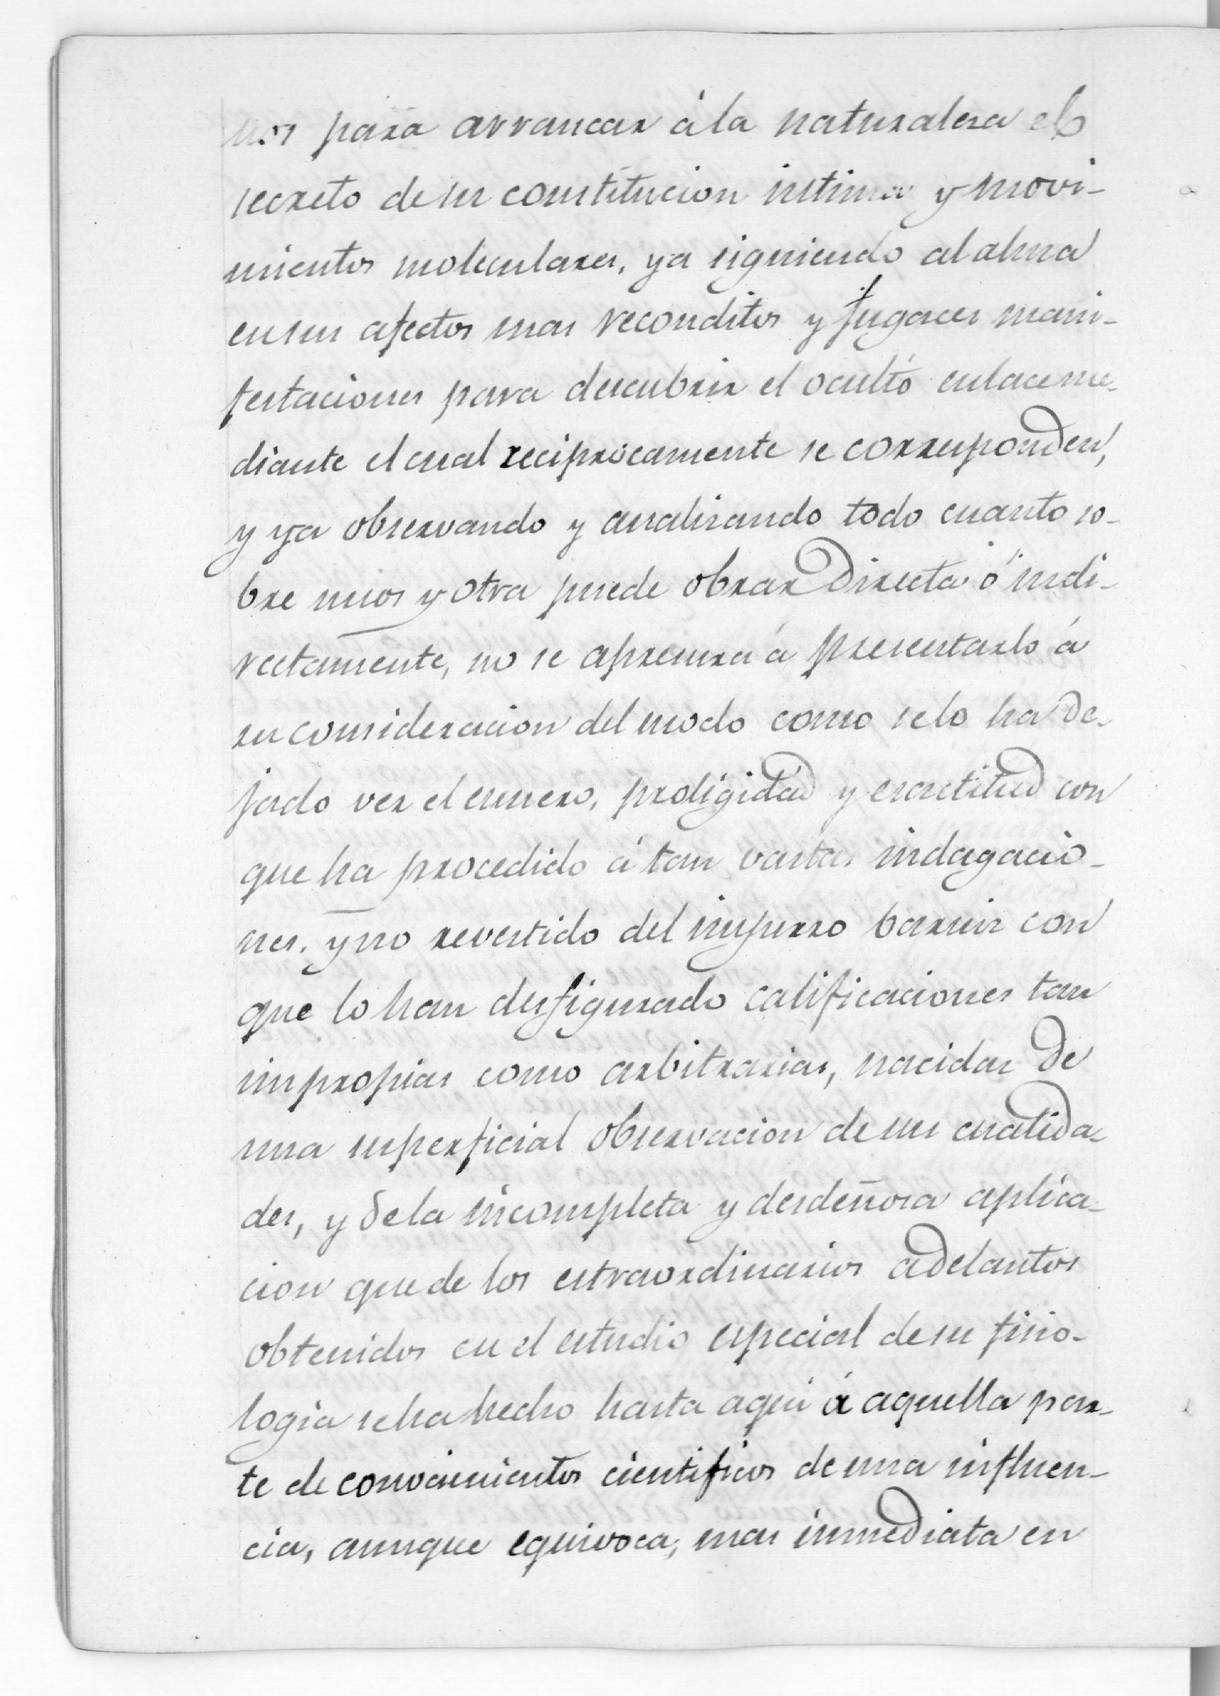 nos para arrancar á la naturaleza el
secreto de su constitucion intima y movi-
mientos moleculares, ya siguiendo al alma
en sus afectos mas reconditos y fugaces mani-
festaciones para descubrir el oculto enlace me-
diante el cual reciprocamente se corresponden,
y ya observando y analizando todo cuanto so-
bre unos y otra puede obrar directa ó indi-
rectamente, no se apresura á presentarlo á
su consideracion del modo como se lo ha de-
jado ver el esmero, prodigidad y exactitud con
que ha procedido á tan vastas indagacio-
nes. y no revestido del impuro barniz con
que lo han desfigurado calificaciones tan
impropias como arbitrarias, nacidas de
una superficial observacion de sus cualida-
des, y de la incompleta y desdeñosa aplica-
cion que de los estraordinarios adelantos
obtenidos en el estudio especial de su fisio-
logía se ha hecho hasta aqui á aquella par-
te de conocimientos cientificos de una influen-
cia, aunque equivoca, mas inmediata en